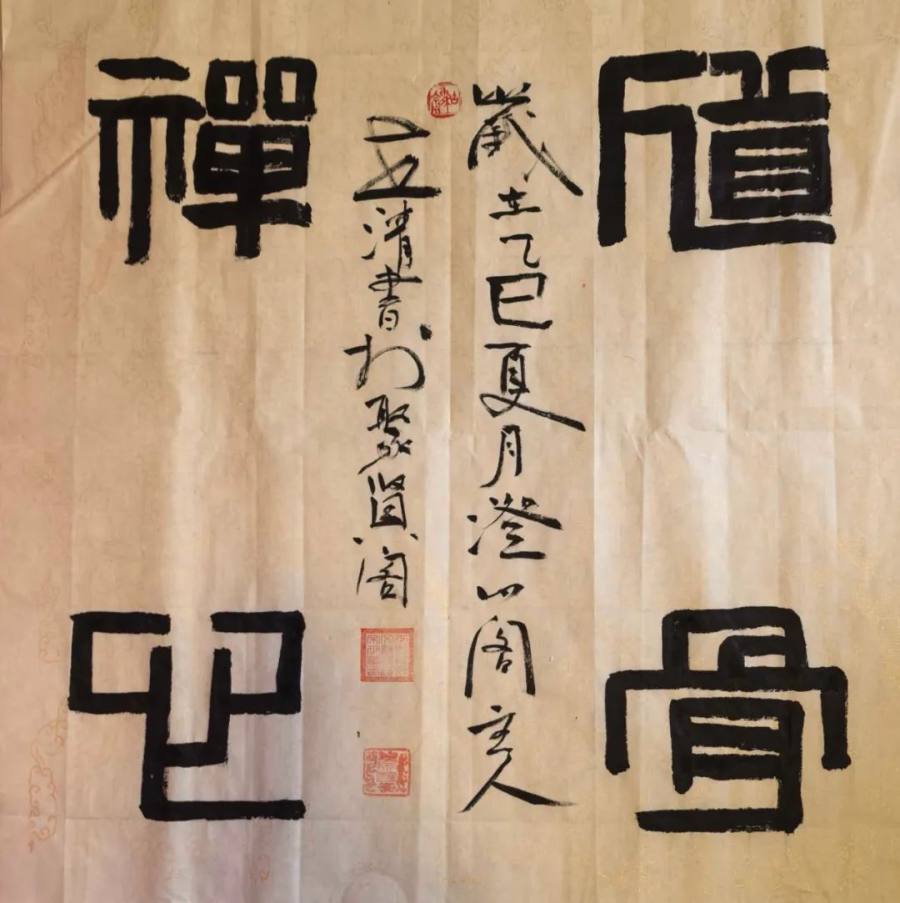 道骨
歲在乙巳夏月澄心閣主人
立清書於聚賢閣
禪心